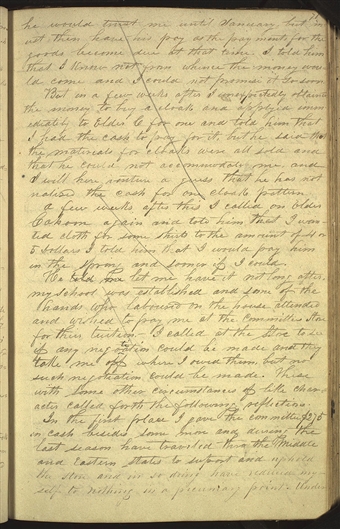 he would trust me until January but
not then have his pay as the payment for the
goods become due at that time I told him
that I knew not from whence the money wou
ld come and I could not promise it so soon
But in a few weeks after I unexpectedly obtained
the money to buy a cloak and applyed imm
ediatly to Elder C for one and told him that
I had the cash to pay for it but he said that
the materials for cloaks were all sold and
that he could not accommodate me, and
I will here venture a guess that he has not
realised the cash for one cloak pattern.
A few weeks after this I called on elder
Cahoon again and told him that I wan
ted cloth for some shirts to the amount of 4 or
5 Dollars I told him that I would pay him
in the spring and sooner if I could.
He told me let me have it not long after
my school was established and some of the
hands who laboured on the house attended
and wished to pay me at the Committee Store
for their tuition. I called at the Store to see
if any negotiation could be made and they
take me off where I owed them but no
such negotiation could be made. These
with some other circumstances of like char
acter called forth the following reflections.
In the first place I gave the committee $275
in cash besides some more and during the
last season have traveled thro the Middle
and Eastern states to suport and uphold
the store and in so doing have reduced my
self to nothing in a pecuniary point. Under